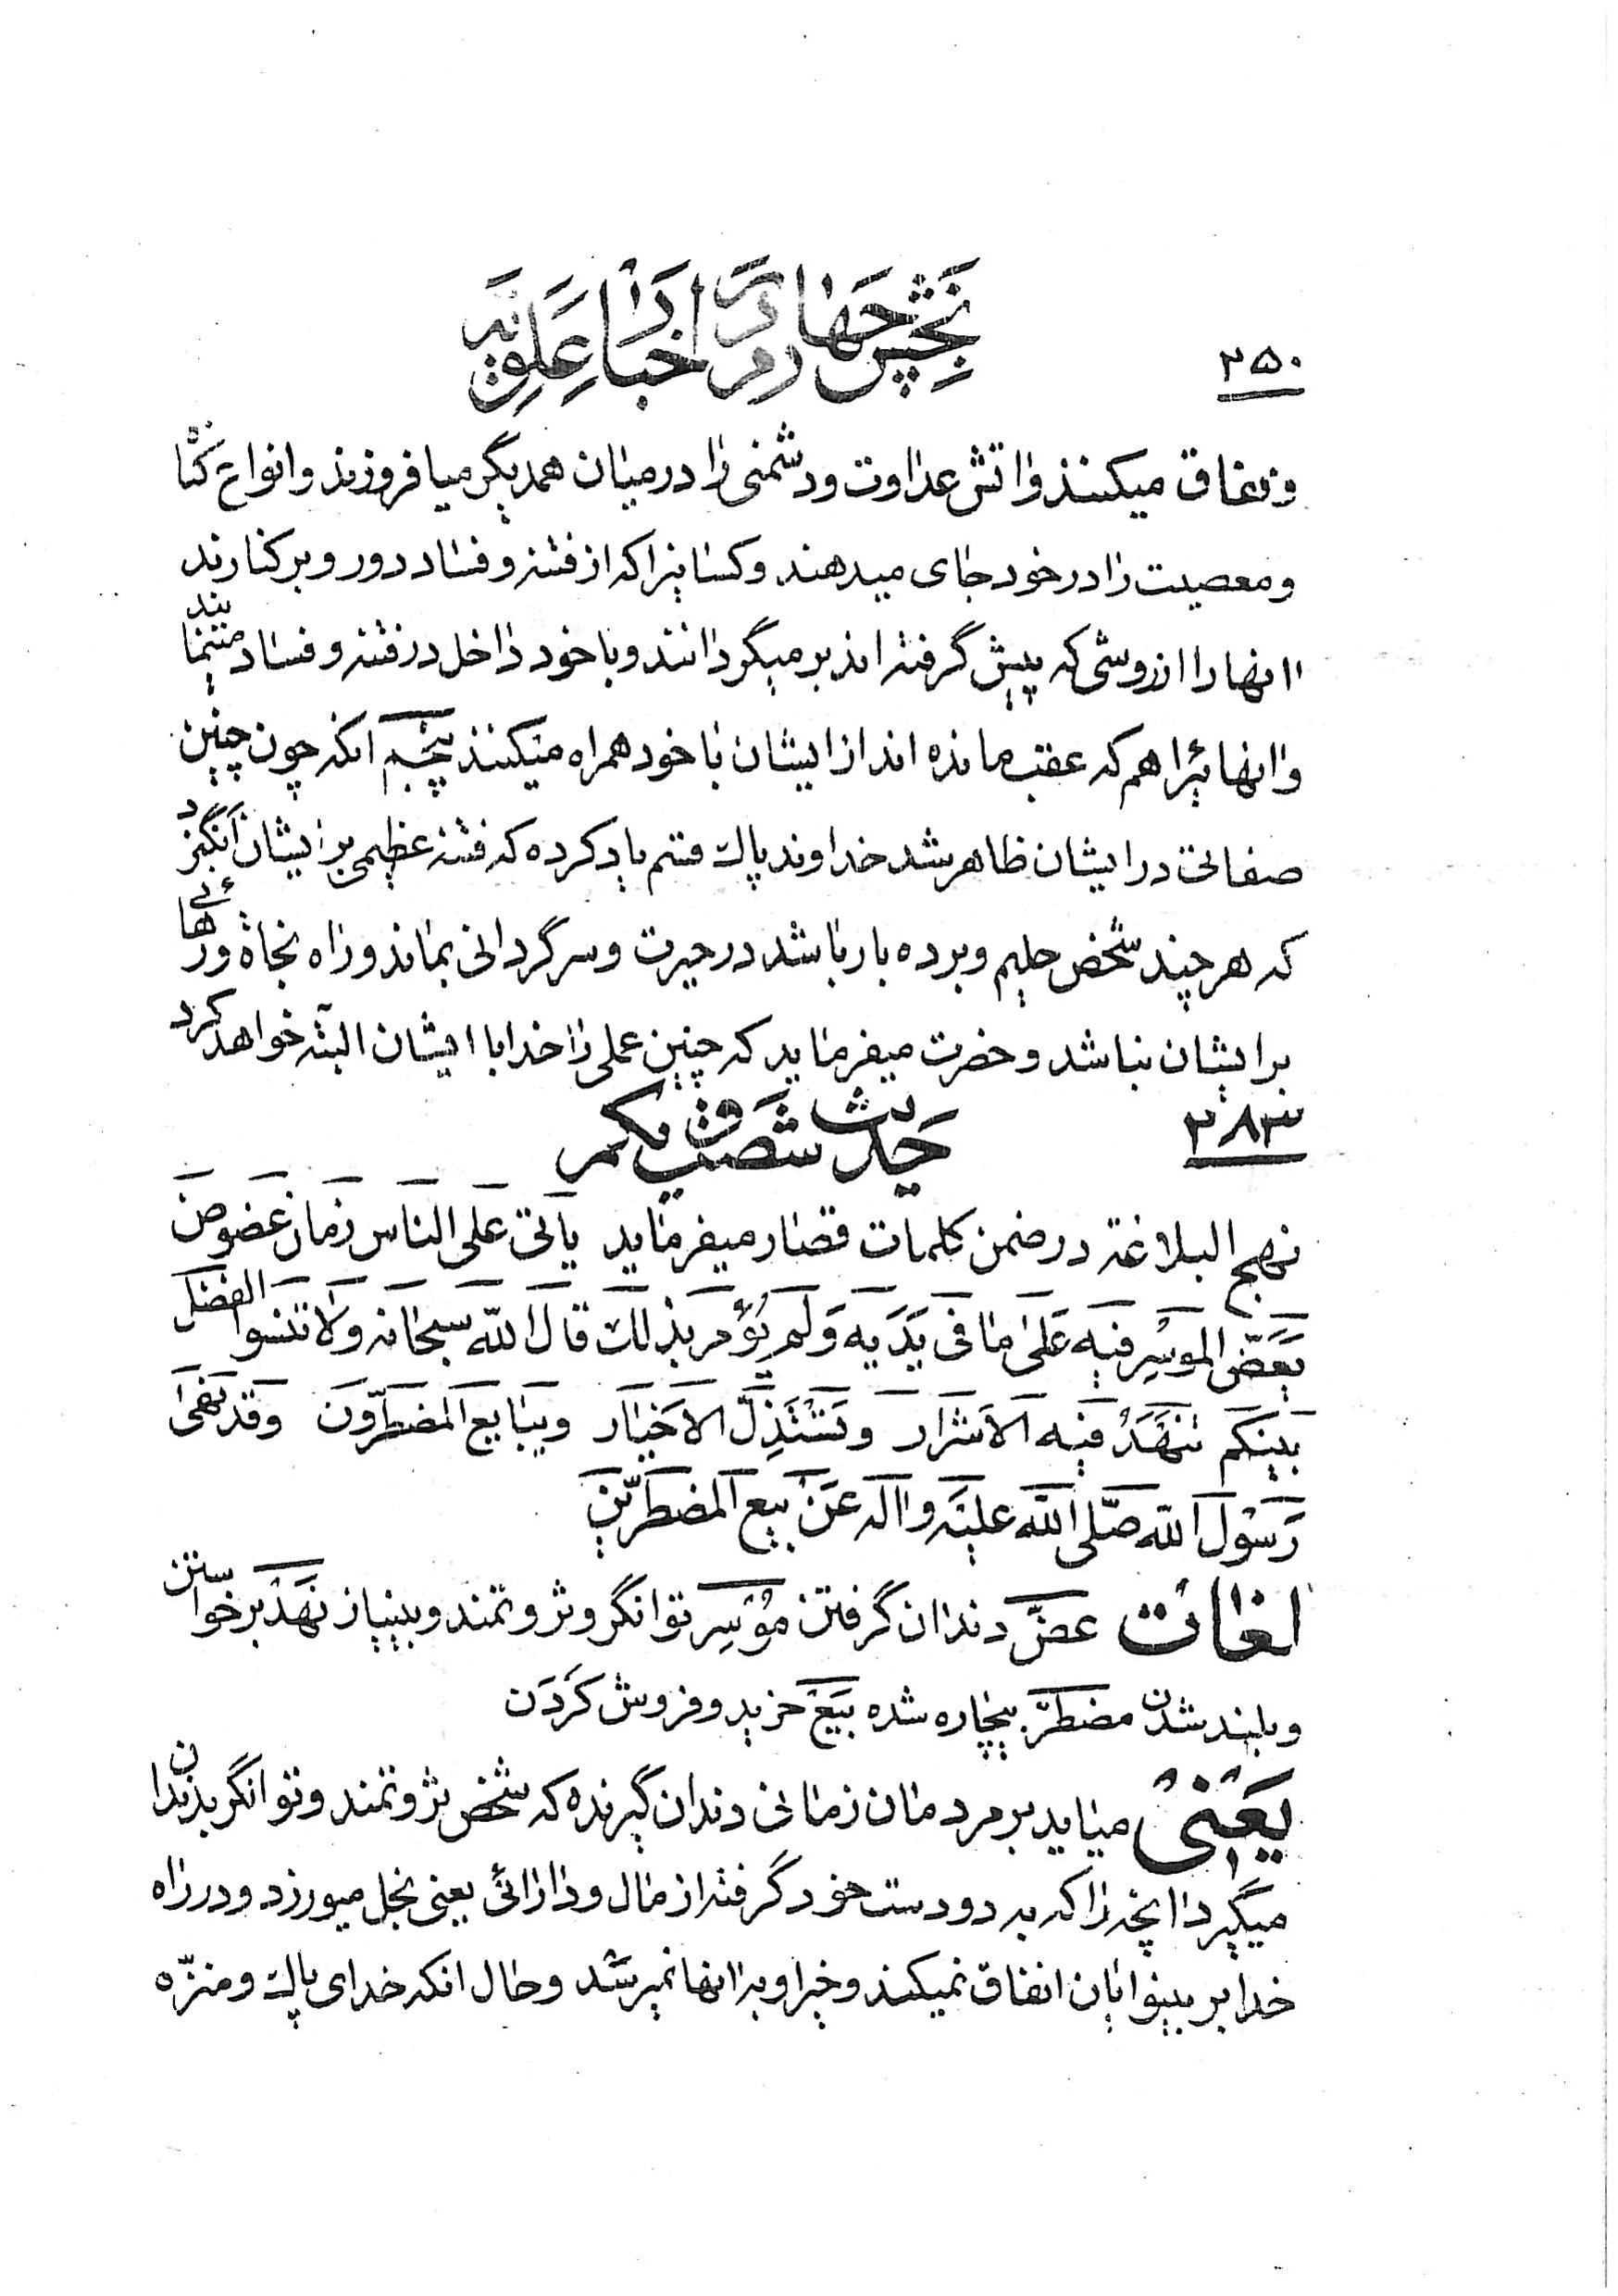 بخش چهارم در اخبار علویه
۲۵۰
و نفاق میکنند و اتش عداوت و دشمنی را در میان همدیگر میافروزند و انواع گنا
و معصیت را در خود جای میدهند و کسانیرا که از فتنه و فساد دور و برکنارند
انها را از روشی که پیش گرفته اند برمیگردانند و با خود داخل در فتنه و فساد مینمایند
و انهائیرا هم که عقب مانده اند از ایشان با خود همراه میکنند پنجم انکه چون چنین
صفاتی در ایشان ظاهر شد خداوند پاک قسم یاد کرده که فتنه عظیمی بر ایشان انگیزد
که هر چند شخص حلیم و برده بار باشد در حیرت و سرگردانی بماند و راه نجاة و رهائی
برایشان نباشد و حضرت میفرماید که چنین عملی را خدا با ایشان البته خواهد کرد
۲۸۳
حدیث شصت و یکم
نهج البلاغه در ضمن کلمات قصار میفرماید یَاتی عَلی الناسِ زَمان عَضوض
یَعَضّ الموسِر فیه عَلی ما فی یَدَیه وَلَم یُؤمر بذلک قالَ الله سبحانه وَلا تنسوا الفضل
بَینَکم تنهَدُ فیه الاَشرار وَتَسْتَذِلّ الاَخیار ویبایع المضطرّونَ وَقَد نَهی
رَسُول الله صَلّی الله عَلیَه واله عَن بیع المضطرّین
لغات عضّ دندان گرفتن مؤسِر توانگر و ثروتمند و بینیاز نَهْد برخواستن
و بلند شدن مضطرّ بیچاره شده بَیَع خرید و فروش کَردَن
یَعَنی میاید بر مردمان زمانی دندان گیرنده که شخص ثروتمند و توانگر بدندان
میگیرد انچه را که به دو دست خود گرفته از مال و دارائی یعنی بخل میورزد و در راه
خدا بر بینوایان انفاق نمیکند و خیر او به انها نمیرسد و حال انکه خدای پاک و منزّه